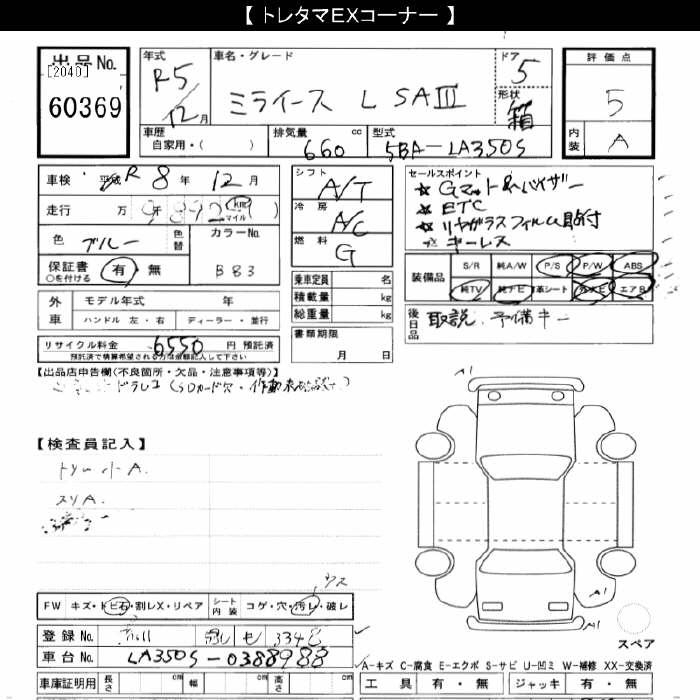 【 トレタマEXコーナー 】
出品No.
[2040]
60369
年式
R5
12月
車名・グレード
ミライース L SAⅢ
ドア
5
形状
箱
評価点
5
内装
A
車歴
自家用・( )
排気量
660 cc
型式
5BA-LA350S
車検 平成 R 8年 12月
走行 万 km マイル
色 ブルー
色替
カラーNo.
B83
保証書 有・無
○を付ける
外車
モデル年式 年
ハンドル 左・右 ディーラー・並行
リサイクル料金 6550円 預託済
預託済で精算希望される方は金額記入して下さい
シフト
A/T
冷房
A/C
燃料
G
乗車定員 名
積載量 kg
総重量 kg
書類期限
月 日
セールスポイント
☆ Gマット&バイザー
☆ ETC
☆ リヤガラスフィルム貼付
☆ キーレス
装備品
S/R 純A/W P/S P/W ABS
純TV 純ナビ 革シート エアB
後日品
取説、予備キー
【出品店申告欄(不良箇所・欠品・注意事項等)】
ドラレコ(SDカード欠・作動
【検査員記入】
スリA.
A1
A1
A1
FW キズ・トビ石・割レX・リペア
シート内装
コゲ・穴・汚レ・破レ
登録No. 3348
車台No. LA350S-0388988
スペア
A-キズ C-腐食 E-エクボ S-サビ U-凹ミ W-補修 XX-交換済
車庫証明用 長さ cm 幅 cm 高さ cm
工具 有・無 ジャッキ 有・無